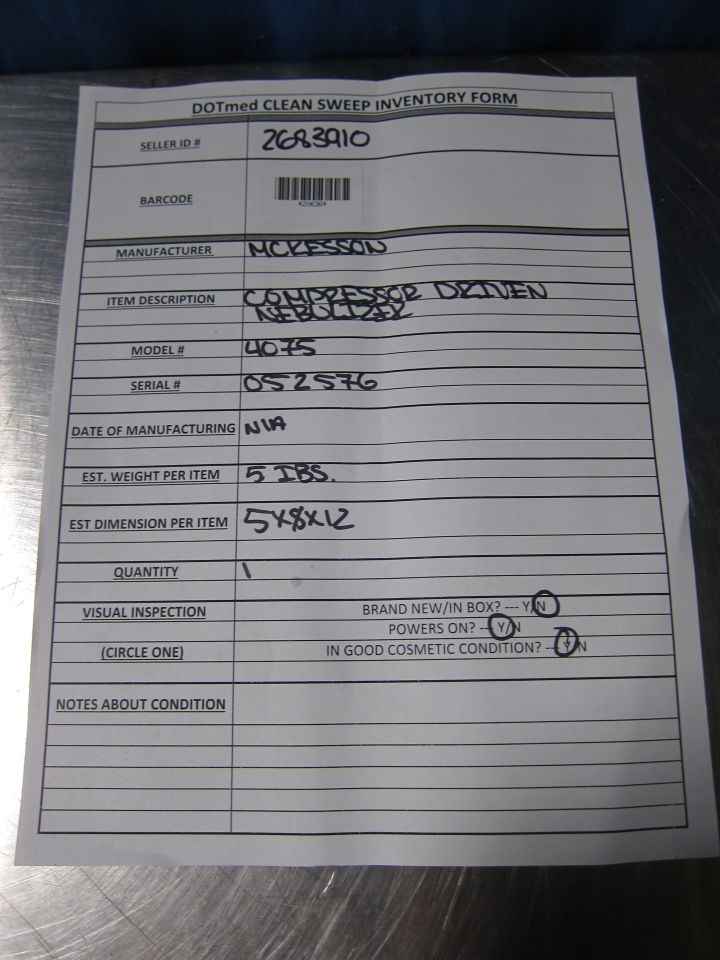 DOTmed CLEAN SWEEP INVENTORY FORM
SELLER ID # 2683910
BARCODE
MANUFACTURER MCKESSON
ITEM DESCRIPTION COMPRESSOR DRIVEN
NEBULIZER
MODEL # 4075
SERIAL # 052576
DATE OF MANUFACTURING N/A
EST. WEIGHT PER ITEM 5 IBS.
EST DIMENSION PER ITEM 5X8X12
QUANTITY 1
VISUAL INSPECTION BRAND NEW/IN BOX? --- Y/N
POWERS ON? --- Y/N
(CIRCLE ONE) IN GOOD COSMETIC CONDITION? --- Y/N
NOTES ABOUT CONDITION